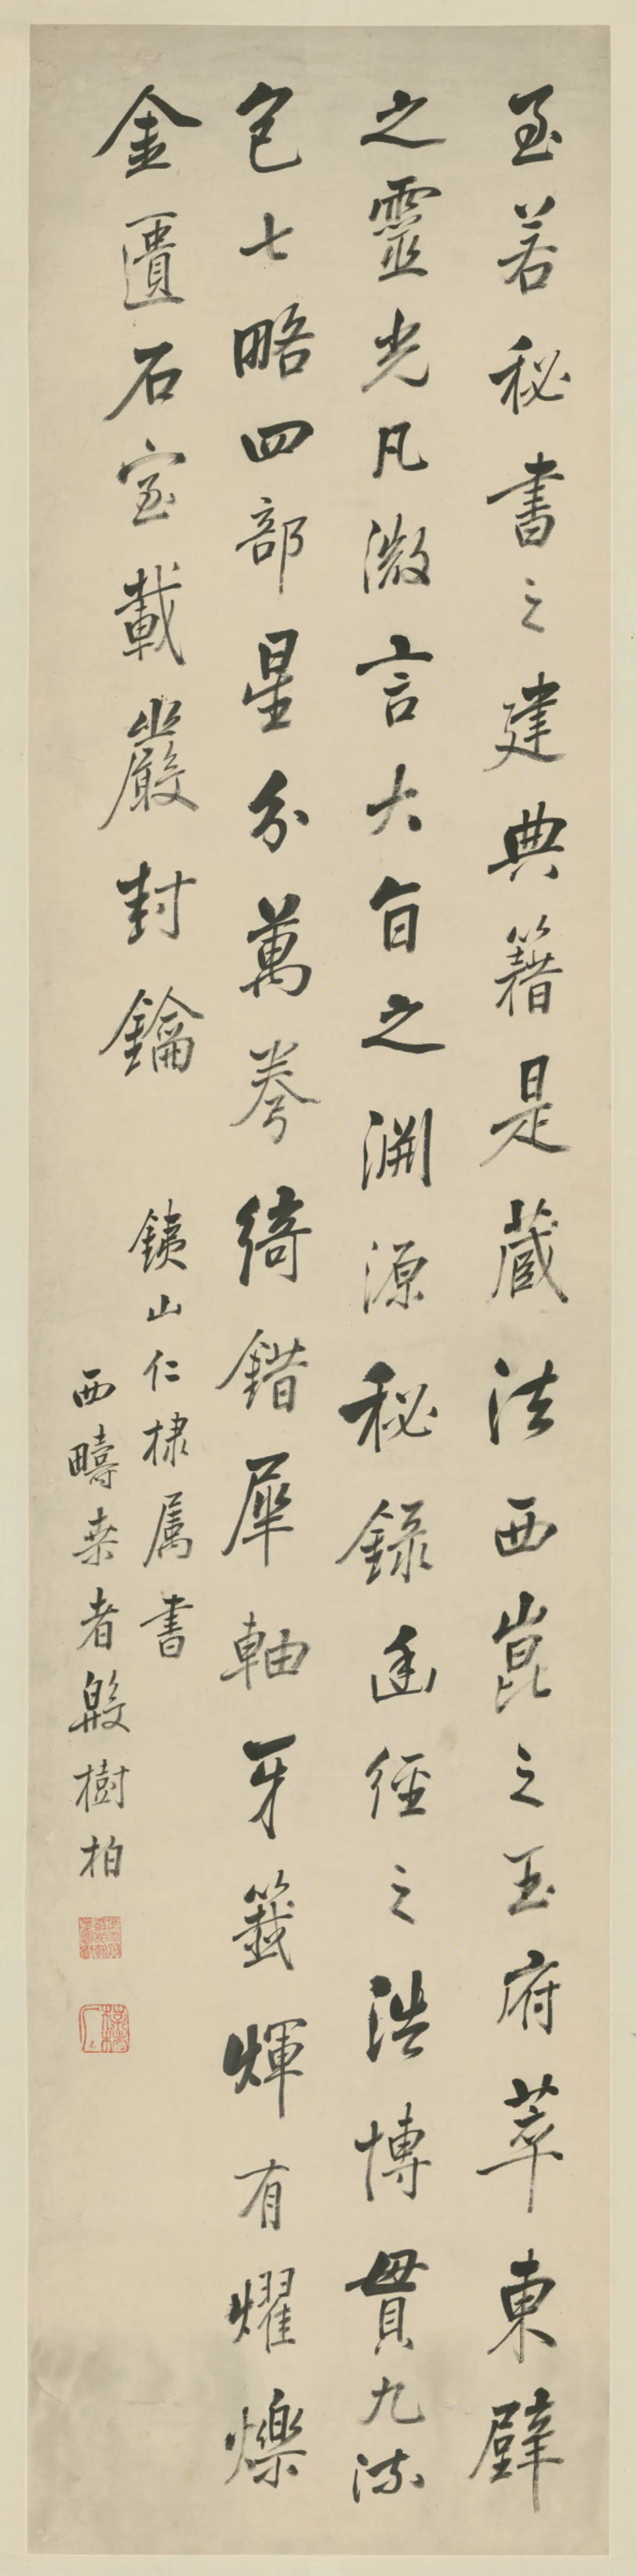 至若秘書之建典籍是藏法西崑之玉府萃東壁
之靈光凡微言大旨之淵源秘錄幽經之浩博貫九流
包七略四部星分萬卷綺錯犀軸牙籤輝有燿爍
金匱石室載嚴封鑰
銕山仁棣属書
西疇桒者殷樹柏